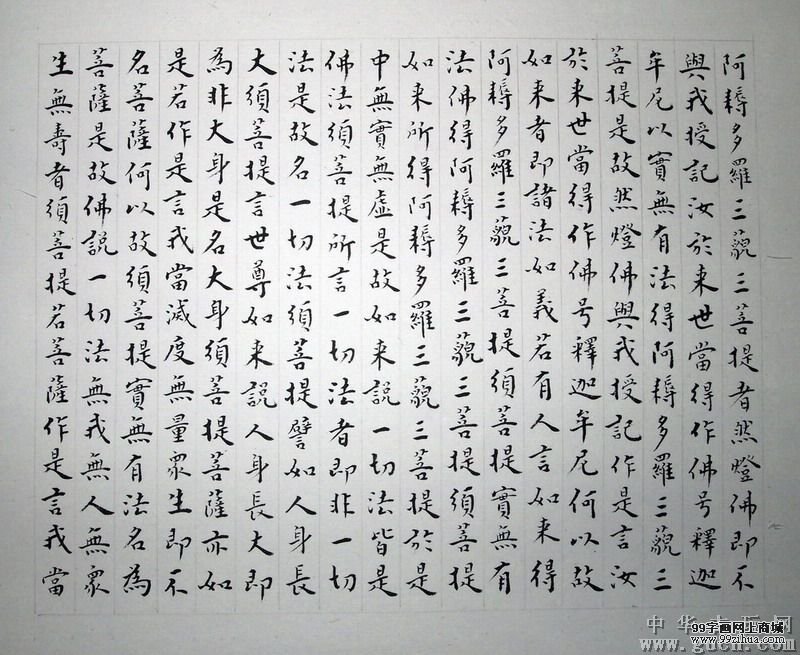 阿耨多羅三藐三菩提者然燈佛即不
與我授記汝於来世當得作佛号釋迦
牟尼以實無有法得阿耨多羅三藐三
菩提是故然燈佛與我授記作是言汝
於来世當得作佛号釋迦牟尼何以故
如来者即諸法如義若有人言如来得
阿耨多羅三藐三菩提須菩提實無有
法佛得阿耨多羅三藐三菩提須菩提
如来所得阿耨多羅三藐三菩提於是
中無實無虛是故如来說一切法皆是
佛法須菩提所言一切法者即非一切
法是故名一切法須菩提譬如人身長
大須菩提言世尊如来說人身長大即
為非大身是名大身須菩提菩薩亦如
是若作是言我當滅度無量衆生即不
名菩薩何以故須菩提實無有法名為
菩薩是故佛說一切法無我無人無衆
生無壽者須菩提若菩薩作是言我當
中华古玩网
www.gucn.com
99字画网上商城
www.99zihua.com